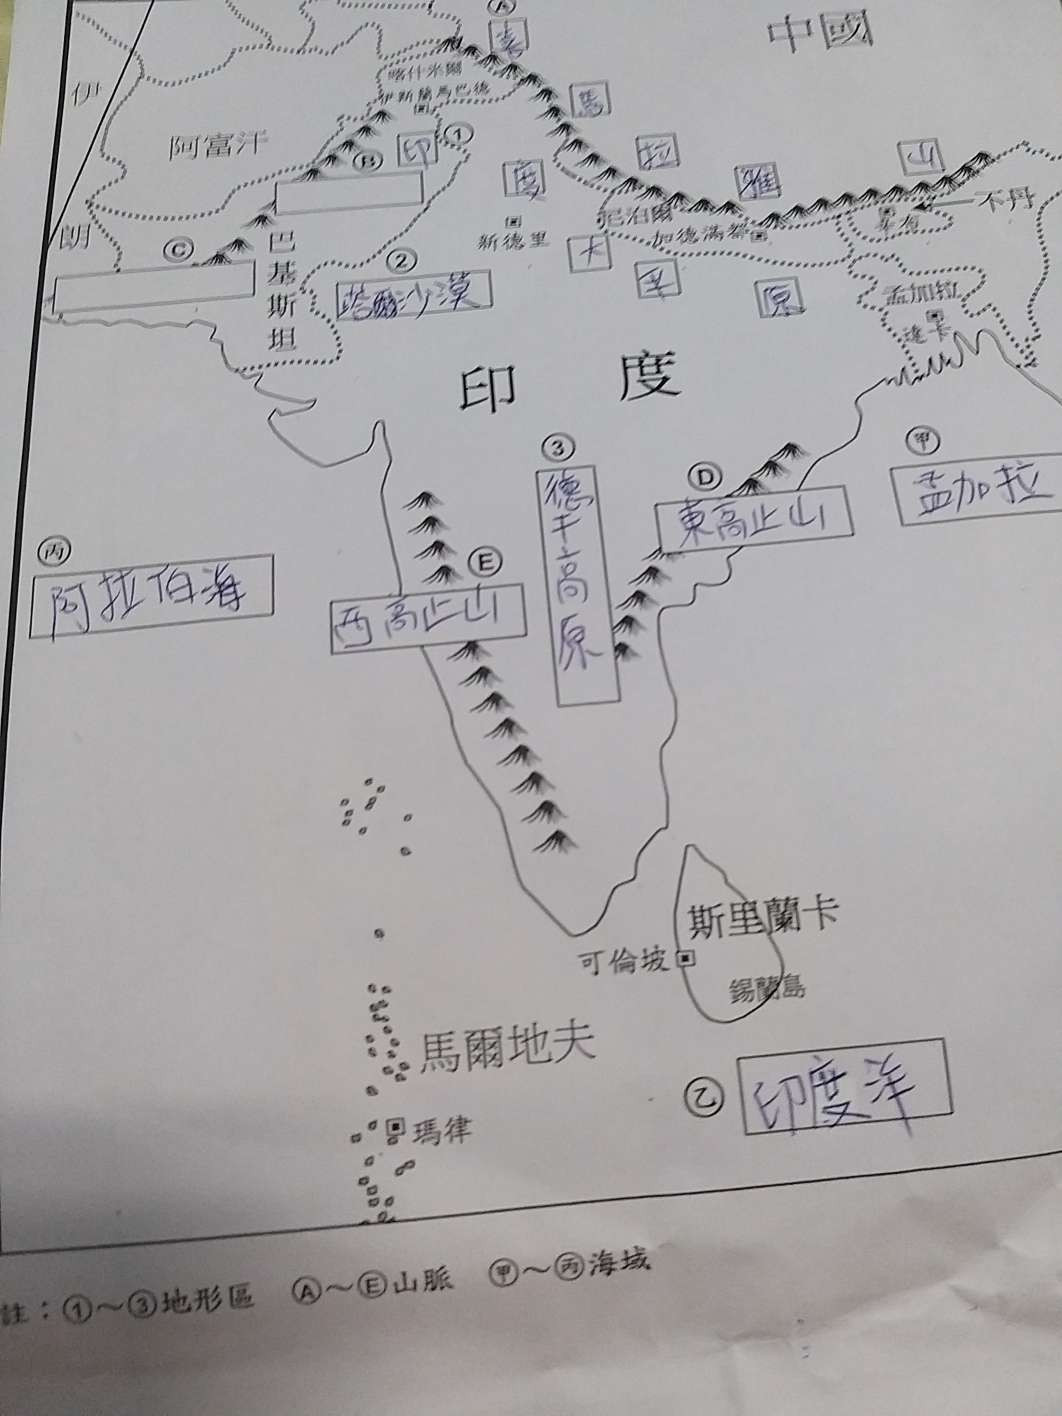 Ⓐ
喜
中國
伊
喀什米爾
伊斯蘭馬巴德
馬
阿富汗
Ⓑ
印
①
拉
山
度
雅
不丹
尼泊爾
朗
新德里
加德滿都
Ⓒ
巴基斯坦
②
塔爾沙漠
原
孟加拉
達卡
印度
③
德干高原
Ⓓ
東高止山
㊥
孟加拉
丙
阿拉伯海
Ⓔ
西高止山
斯里蘭卡
可倫坡
錫蘭島
馬爾地夫
乙
印度洋
瑪律
註：①～③地形區 Ⓐ～Ⓔ山脈 甲～丙海域